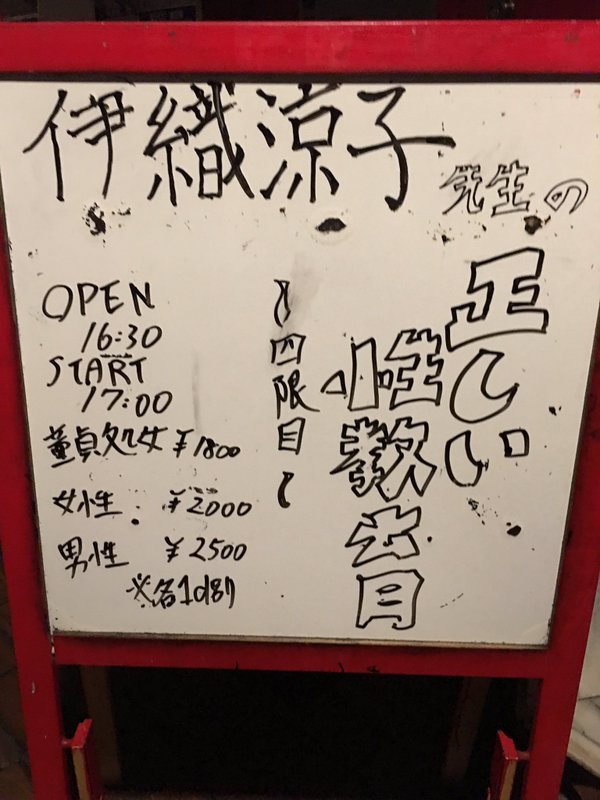 伊織涼子
先生の
正しい
性教育
～四限目～
OPEN
16:30
START
17:00
童貞処女 ¥1800
女性 ¥2000
男性 ¥2500
※各1d別